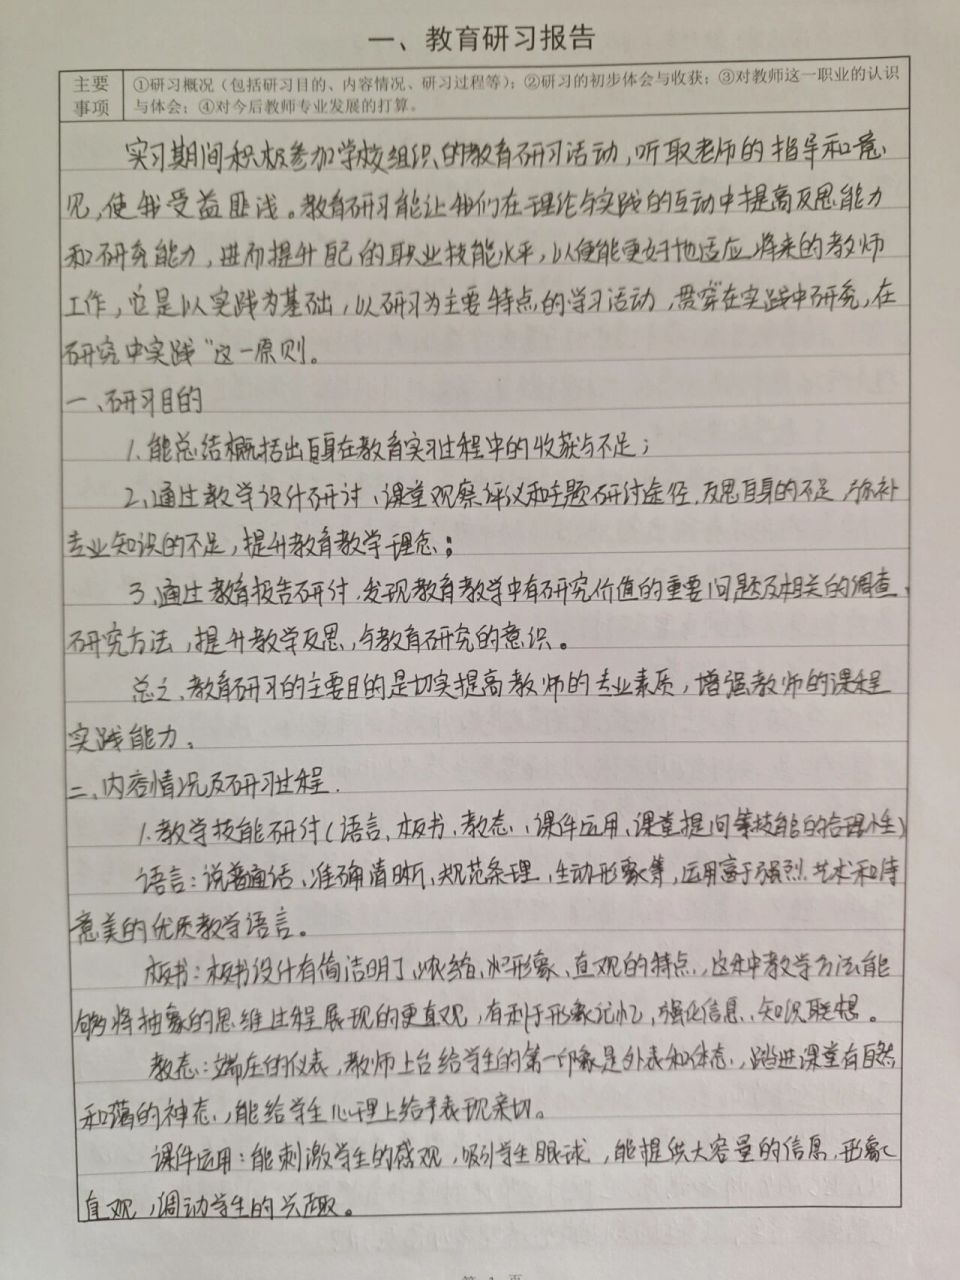 一、教育研习报告
主要
事项
①研习概况（包括研习目的、内容情况、研习过程等）；②研习的初步体会与收获；③对教师这一职业的认识
与体会；④对今后教师专业发展的打算。
实习期间积极参加学校组织的教育研习活动，听取老师的指导和意
见，使我受益匪浅。教育研习能让我们在理论与实践的互动中提高反思能力
和研究能力，进而提升自己的职业技能水平，以便能更好地适应将来的教师
工作，也是以实践为基础，以研习为主要特点的学习活动，贯穿“在实践中研究，在
研究中实践”这一原则。
一、研习目的
1.能总结概括出自身在教育实习过程中的收获与不足；
2.通过教学设计研讨、课堂观察评议和主题研讨途径，反思自身的不足，弥补
专业知识的不足，提升教育教学理念；
3.通过教育报告研讨，发现教育教学中有研究价值的重要问题及相关的调查、
研究方法，提升教学反思，与教育研究的意识。
总之，教育研习的主要目的是切实提高教师的专业素质，增强教师的课程
实践能力。
二、内容情况及研习过程.
1.教学技能研讨（语言、板书、教态、课件运用、课堂提问等技能的合理性）
语言：说普通话、准确清晰、规范条理、生动形象等，运用富于强烈艺术和诗
意美的优质教学语言。
板书：板书设计有简洁明了、浓缩、形象、直观的特点，这种教学方法能
够将抽象的思维过程展现的更直观，有利于形象记忆，强化信息、知识联想。
教态：端庄的仪表，教师上台给学生的第一印象是外表和体态，踏进课堂有自然
和蔼的神态，能给学生心理上给予表现亲切。
课件运用：能刺激学生的感观，吸引学生眼球，能提供大容量的信息，形象
直观，调动学生的兴趣。
第 1 页